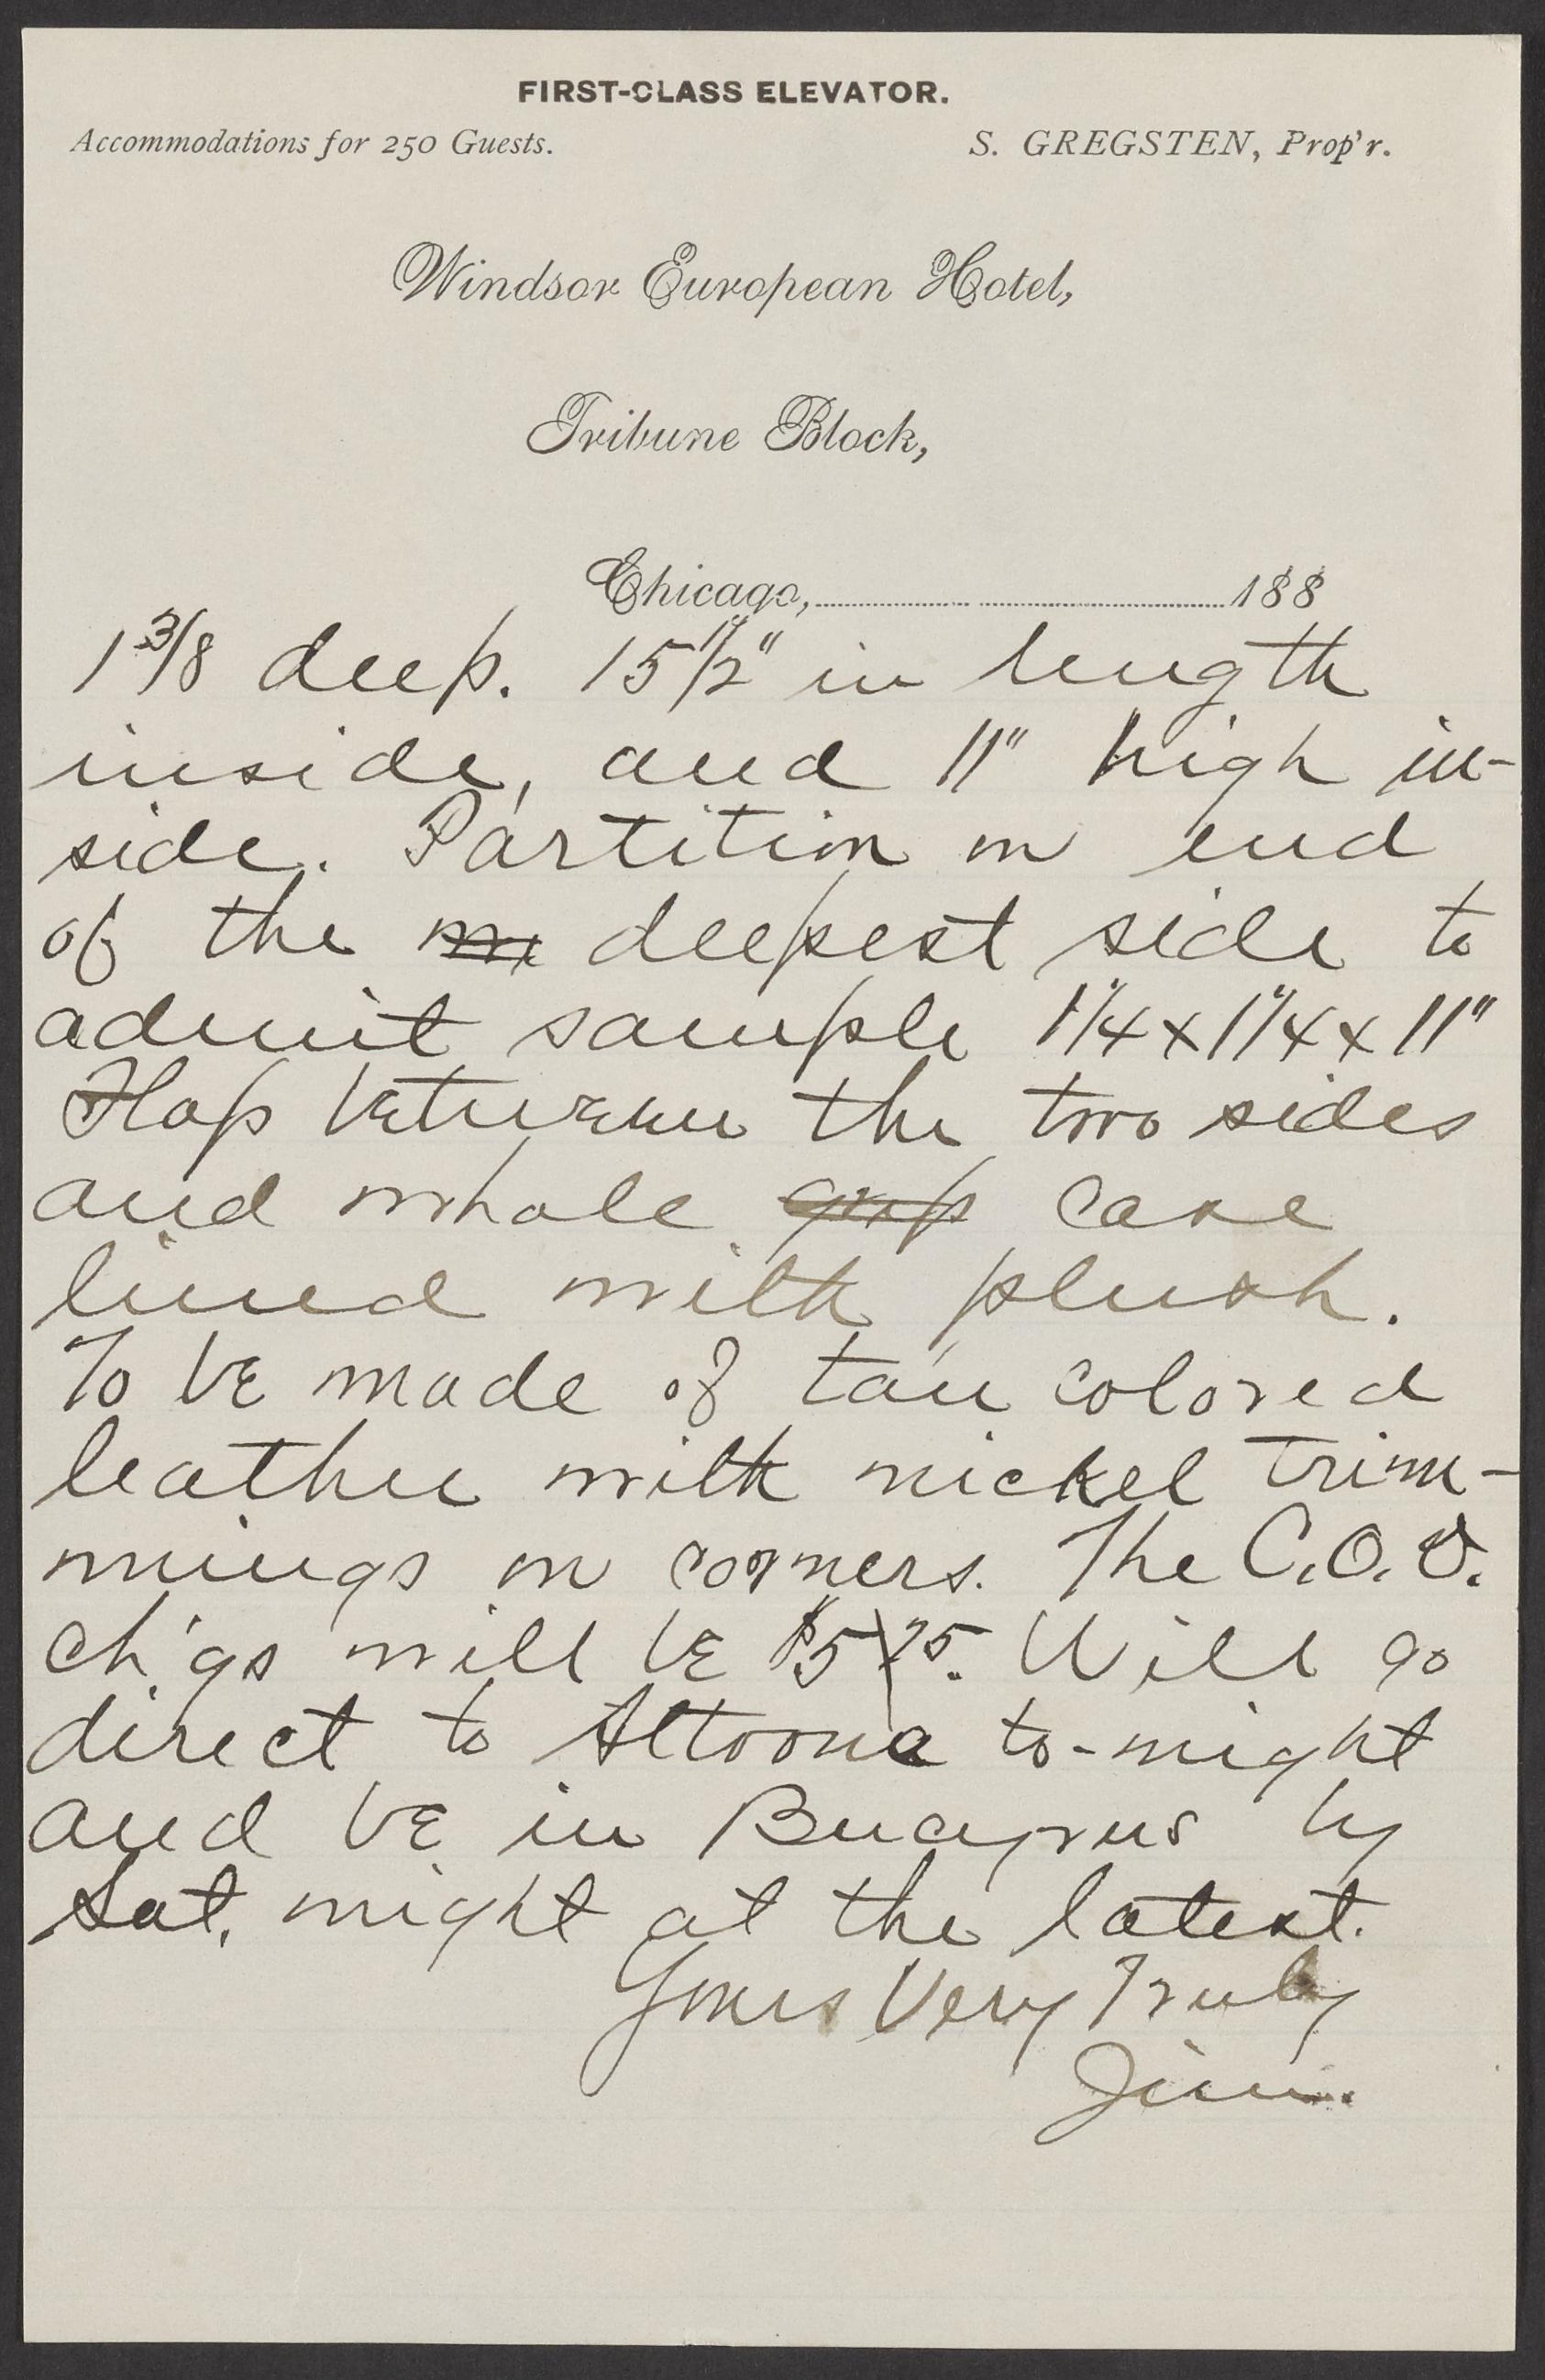 FIRST-CLASS ELEVATOR.
Accommodations for 250 Guests. S. GREGSTEN, Prop'r.
Windsor European Hotel,
Tribune Block,
Chicago, 188
1 3/8 deep. 15 1/2" in length
inside, and 11" high in-
side. Partition on end
of the deepest side to
admit sample 1 1/4 x 1 1/4 x 11"
Flap between the two sides
and whole grip case
lined with plush.
To be made of tan colored
leather with nickel trim-
mings on corners. The C.O.D.
ch'gs will be $5 75. Will go
direct to Altoona to-night
and be in Bucyrus by
Sat. night at the latest.
Yours Very Truly
Jim.